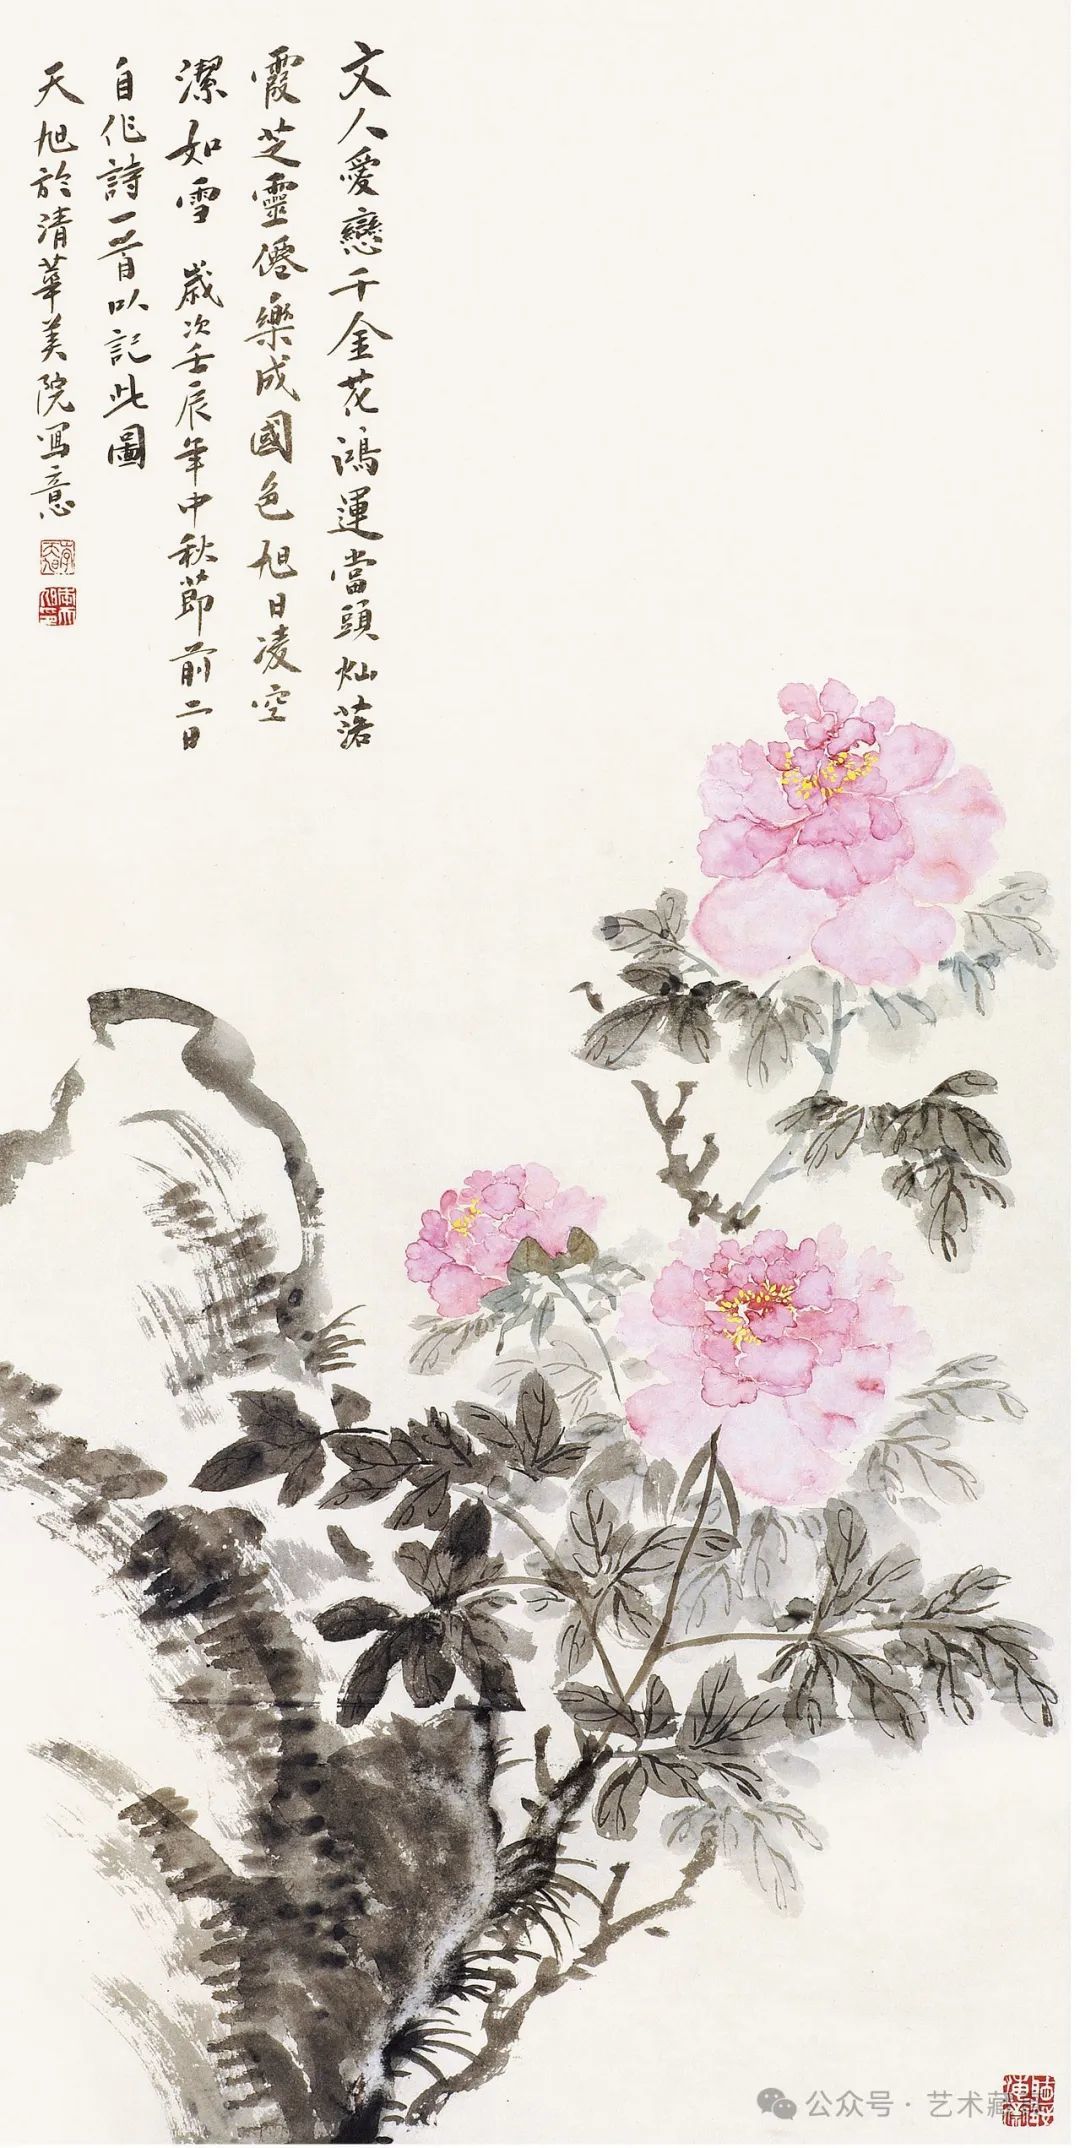 文人愛戀千金花鴻運當頭灿落
霞芝靈僊樂成國色旭日凌空
潔如雪 歲次壬辰年中秋節前二日
自作詩一首以記此圖
天旭於清華美院寫意
公众号·艺术藏